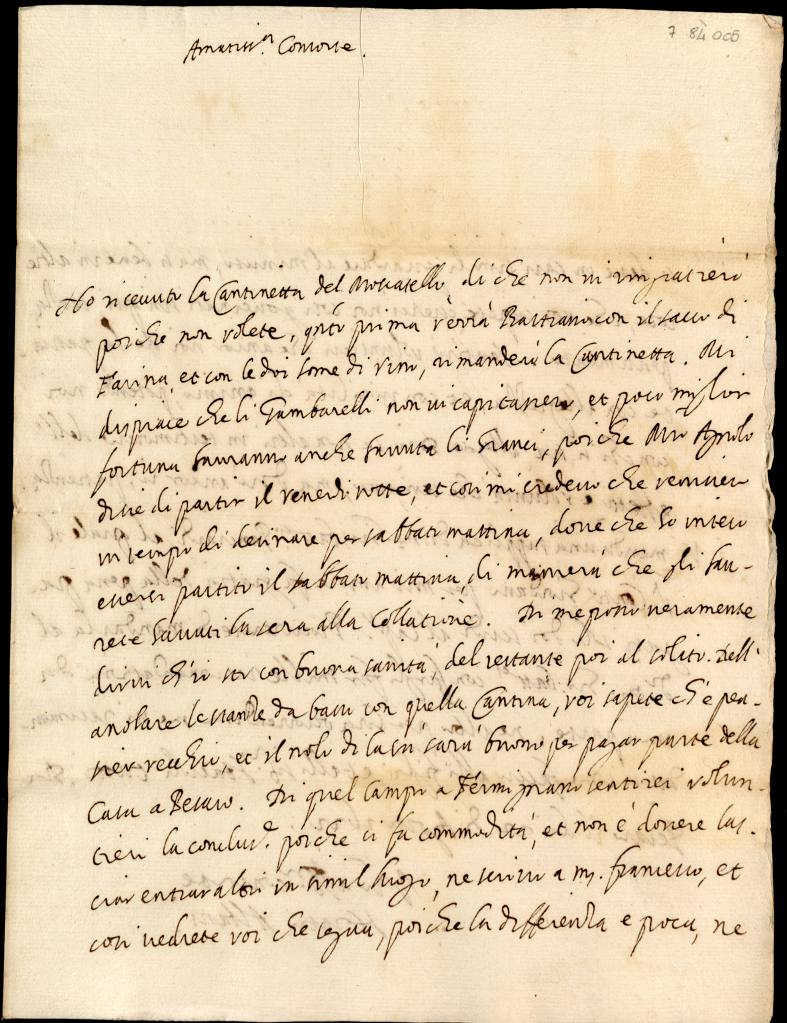 7 84 005
Amatiss.ma Consorte.
Ho riceuuto la Cantinetta del Moscatello di che non ui ringratierò
poiche non uolete, qto prima verrà Bastiano con il sacco di
Farina, et con le doi some di vino, rimanderò la Cantinetta. Mi
dispiace che li Gambarelli non ui capitassero, et poco miglior
fortuna hauranno anche hauuta li Granci, poiche Mro Agnolo
disse di partir il venerdi notte, et così mi credeuo che venisser
in tempo di desinare per sabbato mattina, doue che ho inteso
essersi partito il sabbato mattina, di maniera che gli hau-
rete hauuti la sera alla Collatione. Di me posso ueramente
dirui ch'io sto con buona sanità, del restante poi al solito. Dell'
anolare le stanze da basso con quella Cantina, voi sapete ch'è pen-
sier vecchio, et il nolo di lasù sarà buono per pagar parte della
Casa a Pesaro. Di quel campo a Fermignano sentirei volun-
tieri la conclus.e porche ci fa commodità, et non è douere las-
ciar entrar altri in simil luogo, ne scriuo a m. francesco, et
così uedrete voi che segua, poiche la differenza e poca, ne